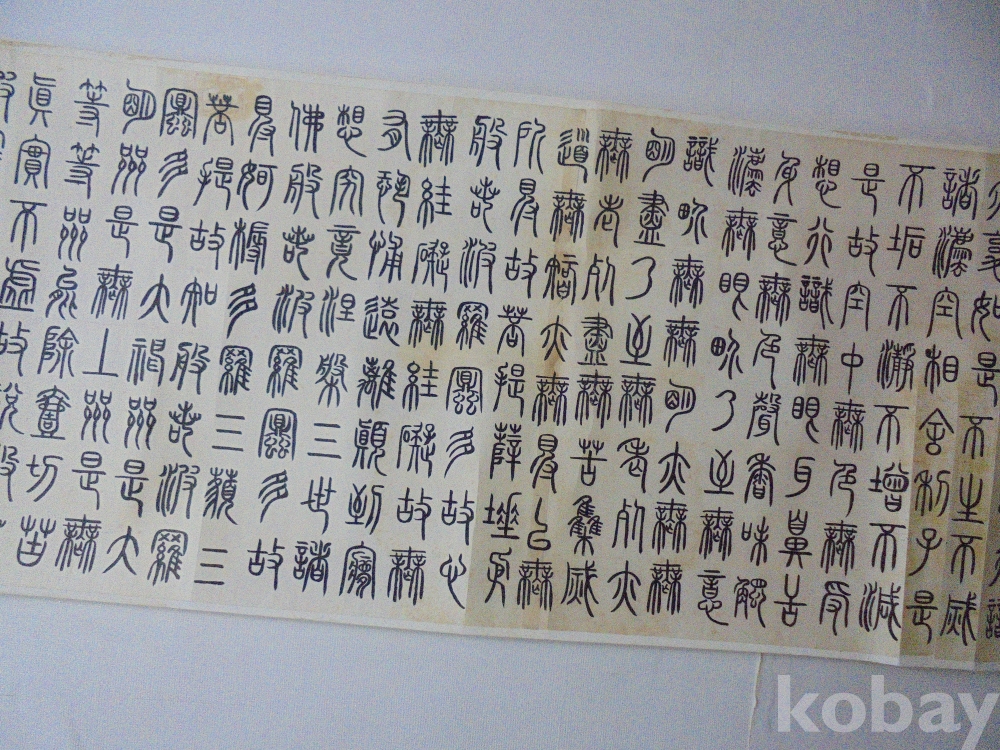 亦復如是不生不滅
諸法空相舍利子是
不垢不淨不增不減
是故空中無色無受
想行識無眼耳鼻舌
身意無色聲香味觸
法無眼界乃至無意
識界無無明亦無無
明盡乃至無老死亦
無老死盡無苦集滅
道無智亦無得以無
所得故菩提薩埵依
般若波羅蜜多故心
無罣礙無罣礙故無
有恐怖遠離顛倒夢
想究竟涅槃三世諸
佛般若波羅蜜多故
得阿耨多羅三藐三
菩提故知般若波羅
蜜多是大神咒是大
明咒是無上咒是無
等等咒能除一切苦
真實不虛故說般
kobay